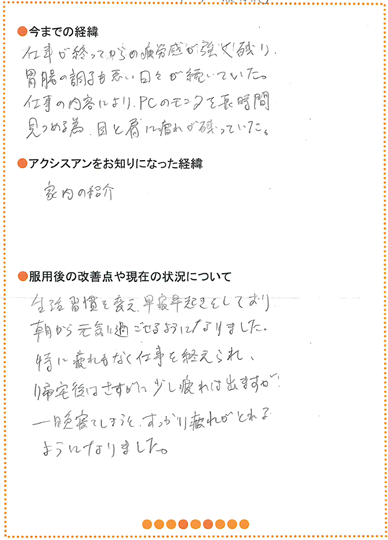 ●今までの経緯
仕事が終ってからの疲労感が強く残り、
胃腸の調子も悪い日々が続いていた。
仕事の内容により、PCのモニタを長時間
見つめる為、目と肩に疲れが残っていた。
●アクシスアンをお知りになった経緯
家内の紹介
●服用後の改善点や現在の状況について
生活習慣を変え、早寝早起きをしており
朝から元気に過ごせるようになりました。
特に疲れもなく仕事を終えられ、
帰宅後はさすがに少し疲れは出ますが
一晩寝てしまうと、すっかり疲れがとれる
ようになりました。